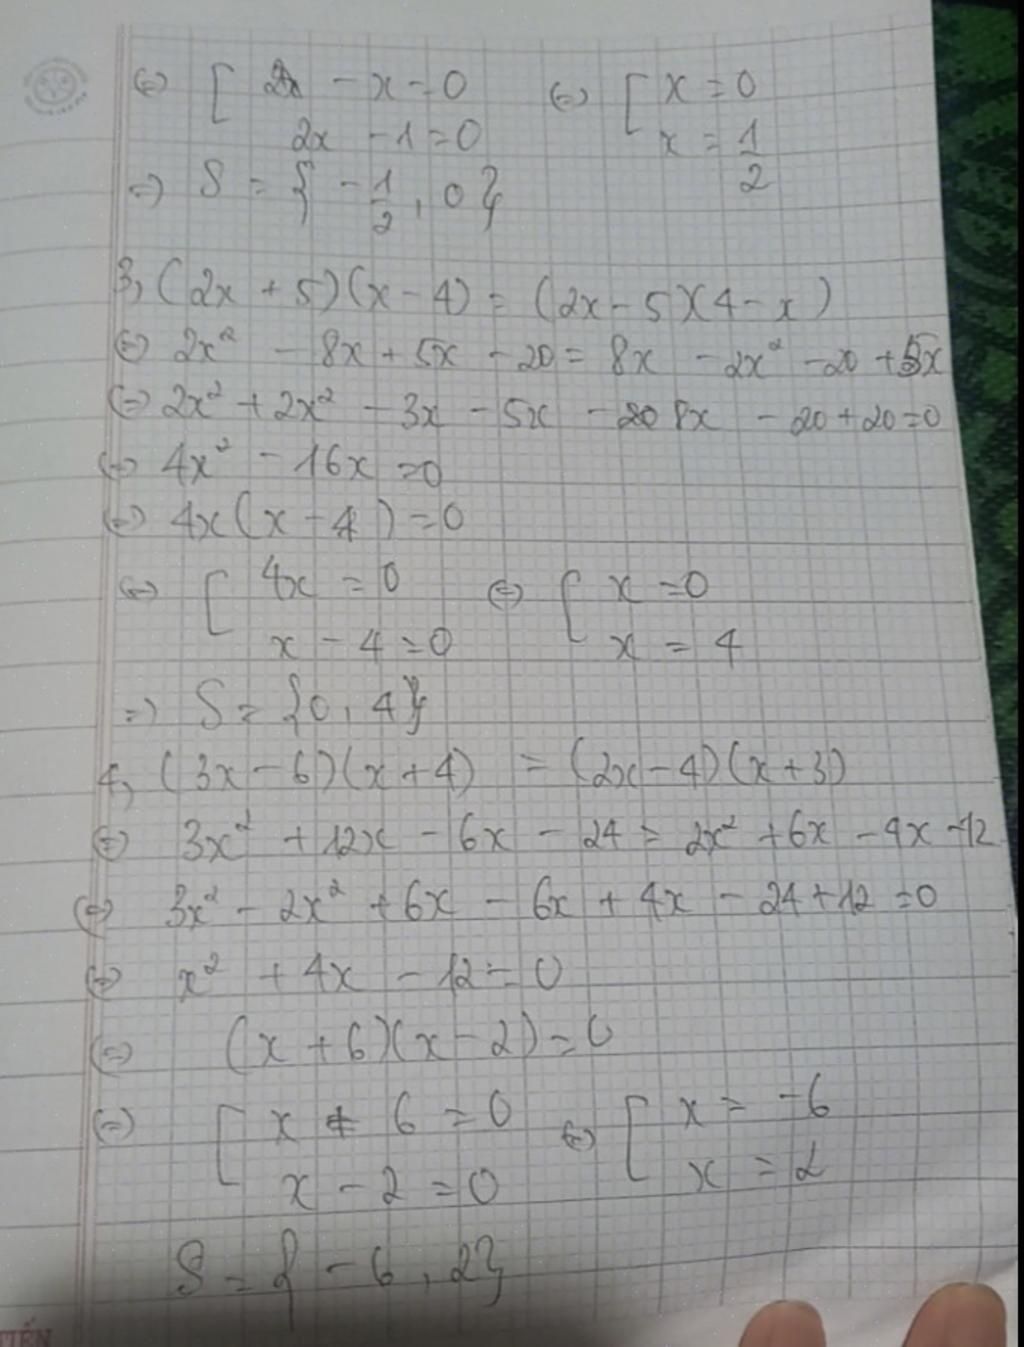 ⇔ [ - x = 0 ⇔ [ x = 0
2x - 1 = 0 x = 1/2
=> S = { -1/2, 0 }
3, (2x + 5)(x - 4) = (2x - 5)(4 - x)
⇔ 2x² - 8x + 5x - 20 = 8x - 2x² - 20 + 5x
⇔ 2x² + 2x² - 3x - 5x - 8x - 20 + 20 = 0
⇔ 4x² - 16x = 0
⇔ 4x(x - 4) = 0
⇔ [ 4x = 0 ⇔ [ x = 0
x - 4 = 0 x = 4
=> S = {0, 4}
4, (3x - 6)(x + 4) = (2x - 4)(x + 3)
⇔ 3x² + 12x - 6x - 24 = 2x² + 6x - 4x - 12
⇔ 3x² - 2x² + 6x - 6x + 4x - 24 + 12 = 0
⇔ x² + 4x - 12 = 0
⇔ (x + 6)(x - 2) = 0
⇔ [ x + 6 = 0 ⇔ [ x = -6
x - 2 = 0 x = 2
S = { -6, 2}
TIẾN